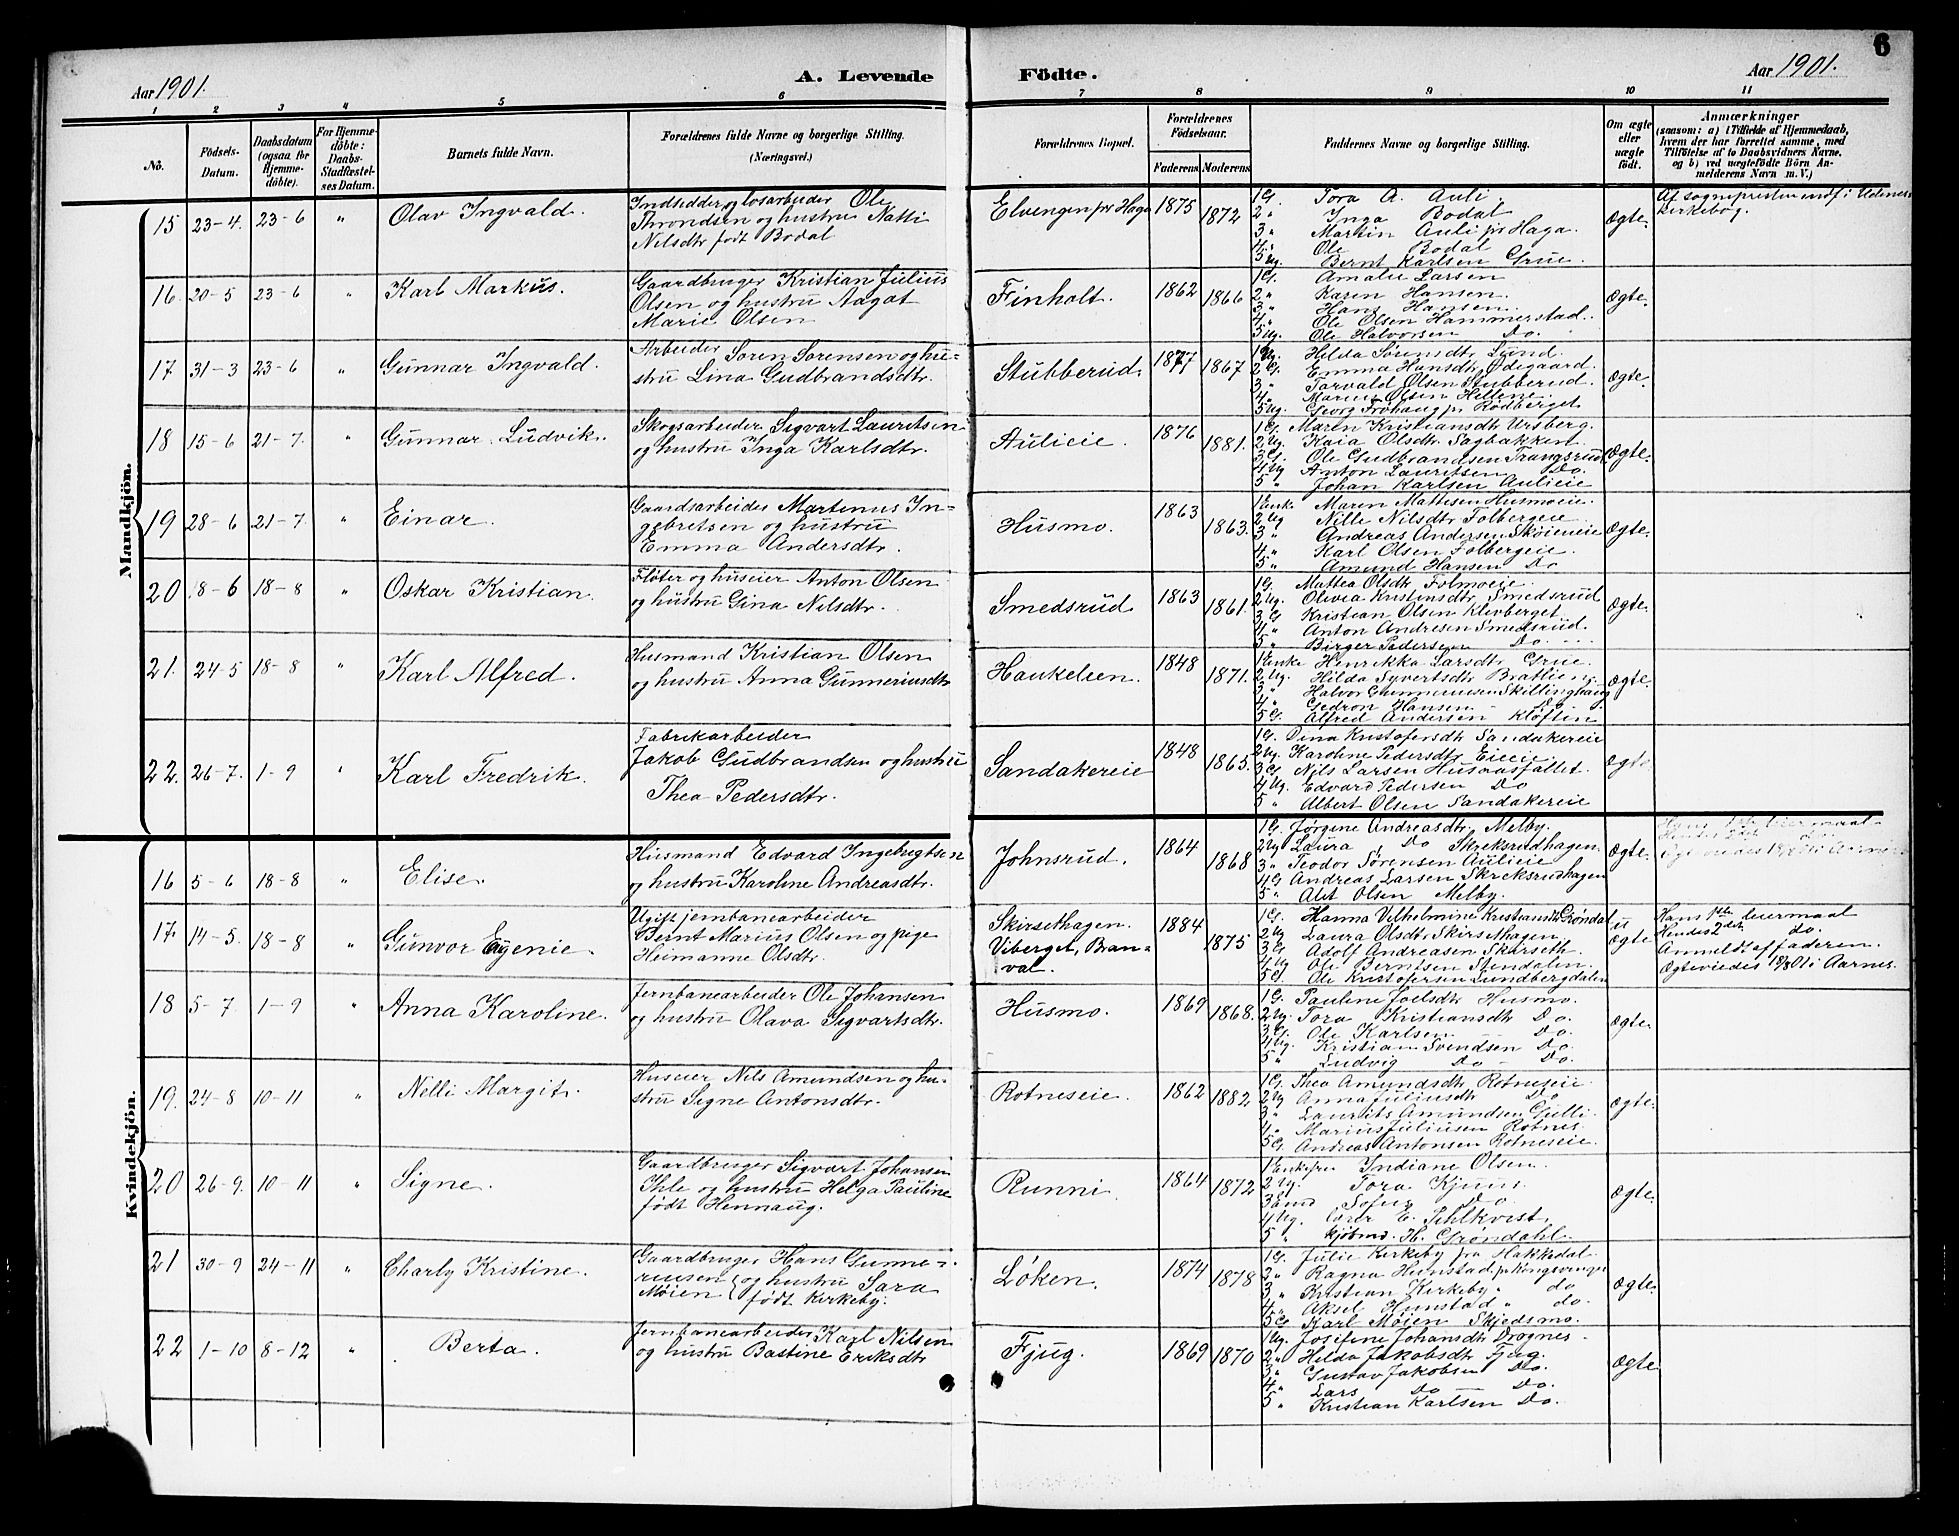 Aar 1901.
A. Levende
Födte.
Aar 1901.
6
1 2 3 4 5 6 7 8 9 10 11
No.
Födsels-
Datum.
Daabsdatum
(ogsaa for
Hjemme-
döbte).
For Hjemme-
döbte:
Daabs-
Stadfæstel-
ses Datum.
Barnets fulde Navn.
Forældrenes fulde Navne og borgerlige Stilling.
(Næringsvei.)
Forældrenes Bopæl.
Forældrenes
Födselsaar.
Faderens
Moderens
Faddernes Navne og borgerlige Stilling.
Om ægte
eller
uægte
födt.
Anmærkninger
(saasom: a) i Tilfælde af Hjemmedaab,
hvem der har forrettet samme, med
Tilföielse af to Daabsvidners Navne,
og b) ved uægtefödte Börn An-
melderens Navn m. V.)
Mandkjön.
15 23-4. 23-6 " Olav Ingvald.
Indsidder og løsarbeider Ole
Throndsen og hustru Natti
Nilsdtr født Bodal
Elvengen pr Haga 1875 1872
1 G. Tora A. Auli.
2 " Inga Bodal
3 " Martin Auli pr Haga.
4 " Ole Bodal
5 Ug. Bernt Karlsen Grue.
Ægte.
Af sognepresten indf i Udenes
kirkebog.
16. 20-5 23-6 " Karl Markus.
Gaardbruger Kristian Julius
Olsen og hustru Aagot
Marie Olsen
Finholt. 1862 1866
1 G. Amalie Larsen
2 " Karen Hansen.
3 " Hans Hansen
4 " Ole Olsen Hammerstad.
5 Ug. Ole Halvorsen Do.
Ægte.
17. 31-3 23-6 " Gunnar Ingvald.
Arbeider Soren Sorensen og hu-
stru Lina Gudbrandsdtr.
Stubberud. 1877 1867
1 Ug. Hilda Sørensdtr Lund.
2 G. Emma Hansdtr Ødegaard.
3 " Torvald Olsen Stubberud.
4 " Marius Olsen Hellene.
5 Ug. Georg Frohaug pr Rødberget
Ægte.
18 15-6 21-7. " Gunnar Ludvik.
Skogsarbeider Sigvart Lauritsen
og hustru Inga Karlsdtr.
Aulieie. 1876 1881.
1 G. Maren Kristiansdtr Ursberg.
2 Ug. Kaia Olsdtr Sagbakken.
3 G. Ole Gudbrandsen Trangsrud
4 Ug Anton Lauritsen Do.
5 " Johan Karlsen Aulieie
Ægte.
19 28-6 21-7. " Einar.
Gaardsarbeider Martenus In-
gebretsen og hustru
Emma Andersdtr.
Husmo. 1863 1863.
1 Enke Maren Mathisen Husmoeie.
2 Ug Nilli Nilsdtr Folbergeie
3 " Andreas Andersen Skøieneie
4 " Karl Olsen Folbergeie.
5 " Amund Hansen Do
Ægte.
20 18-6 18-8 " Oskar Kristian.
Fløter og huseier Anton Olsen
og hustru Gina Nilsdtr.
Smedsrud 1863 1861.
1 G. Mattea Olsdtr Folmoeie.
2 Ug. Olivia Kristinsdtr Smedsrud
3 G Kristian Olsen Klevberget
4 " Anton Andresen Smedsrud.
5 " Birger Pedersen Do.
Ægte.
21. 24-5 18-8 " Karl Alfred.
Husmand Kristian Olsen
og hustru Anna Gunneriusdtr
Haukeleen. 1848 1871.
1 Enke Henrikka Larsdtr Grue.
2 Ug. Hilda Syvertsdtr Brattien.
3 " Halvor Gunneriusen Skillinghaug
4 " Gedron Hansen Do
5 G. Alfred Andersen Kløften
Ægte.
22. 26-7. 1-9 " Karl Fredrik.
Fabrikarbeider
Jakob Gudbrandsen og hustru
Thea Pedersdtr.
Sandakereie 1848 1865.
1 G. Dina Kristofersdtr Sandakereie
2 Ug. Karoline Pedersdtr Eieie
3 G. Nils Larsen Husmosfallet.
4 Ug. Edvard Pedersen Do
5 " Albert Olsen Sandakereie
Ægte.
Kvindekjön.
16 5-6 18-8 " Elise.
Husmand Edvard Ingebrigtsen
og hustru Karoline Andreasdtr.
Johnsrud. 1864 1868
1 G. Jørgine Andreasdtr Melby.
2 Ug Laura Do Skreksrudhagen.
3 " Teodor Sørensen Aulieie
4 G Andreas Larsen Skreksrudhagen
5 " Alet Olsen Melby.
Ægte.
17. 14-5. 18-8 " Gunvor Eugenie.
Ugift jernbanearbeider
Bernt Marius Olsen og pige
Heimanne Olsdtr.
Skirsethagen.
Viberget, Bran-
val.
1884 1875
1 G. Hanna Vilhelmine Kristiansdtr Grøndal
2 Ug Laura Olsdtr Skirsethagen.
3 G. Adolf Andreasen Skarseth.
4 Ug Ole Berntsen Stendalen.
5 G. Ole Kristofersen Lundbergdalen
u
Ægte
Hans 1ste leiermaal
Hendes 2det do.
Anmeldt af faderen.
Ægteviedes 18/8 01 i Aarnes.
18 5-7. 1-9 " Anna Karoline.
Jernbanearbeider Ole Johansen
og hustru Olava Sigvartsdtr.
Husmo. 1869 1868.
1 G. Pauline Joelsdtr Husmo.
2 Ug. Tora Kristiansdtr Do.
3 G. Ole Karlsen Do.
4 Ug. Kristian Svendsen Do.
5 " Ludvig Do Do.
Ægte.
19. 24-8 10-11 " Nelli Margit.
Huseier Nils Amundsen og hu-
stru Signe Antonsdtr.
Rotneseie. 1862 1882
1 G. Thea Amundsdtr Rotneseie
2 Ug Anna Juliusdtr Do
3 " Laurits Amundsen Gjelli.
4 " Marius Juliusen Rotnes.
5 G. Andreas Antonsen Rotneseie.
Ægte.
20 26-9. 10-11 " Signe.
Gaardbruger Sigvart Johansen
Ihle og hustru Helga Pauline
født Hennaug.
Runni. 1864 1872
1 Enkefru Indiane Olsen.
2 Ug. Tora Kjuus.
4 Ug.
5 " Kjøbmd. H. Grøndahl.
Ægte.
21 30-9 24-11 " Charly Kristine.
Gaardbruger Hans Gunne-
riusen } og hustru Sara
Møien } født Kirkeby.
Løken. 1874 1878
1 G. Julie Kirkeby fra Hakkedal.
2 " Ragna Hunstad pr Kongsvinger
3 " Kristian Kirkeby " do
4 " Aksel Hunstad " do.
5 G Karl Møien Skjedsmo.
Ægte.
22 1-10 8-12 " Berta.
Jernbanearbeider Karl Nilsen
og hustru Bastine Eriksdtr
Fjug. 1869 1870
1 Ug. Josefine Johansdtr Drognes.
2 " Hilda Jakobsdtr Fjug.
3 " Gustav Jakobsen Do.
4 " Lars Do Do.
5 " Kristian Karlsen Do.
Ægte